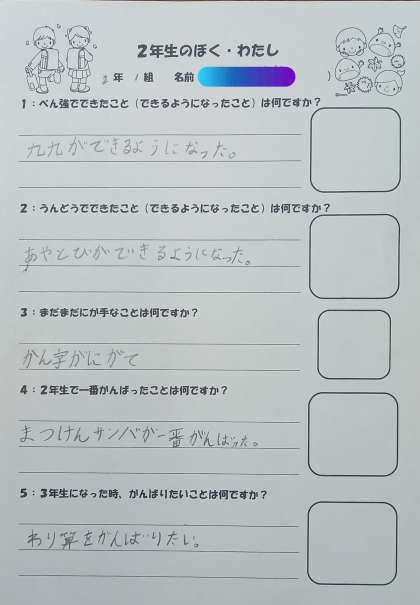 2年生のぼく・わたし
2年 1組 名前
1:べん強でできたこと(できるようになったこと)は何ですか?
九九ができるようになった。
2:うんどうでできたこと(できるようになったこと)は何ですか?
あやとびができるようになった。
3:まだまだにが手なことは何ですか?
かん字がにがて
4:2年生で一番がんばったことは何ですか?
まつけんサンバが一番がんばった。
5:3年生になった時、がんばりたいことは何ですか?
わり算をがんばりたい。